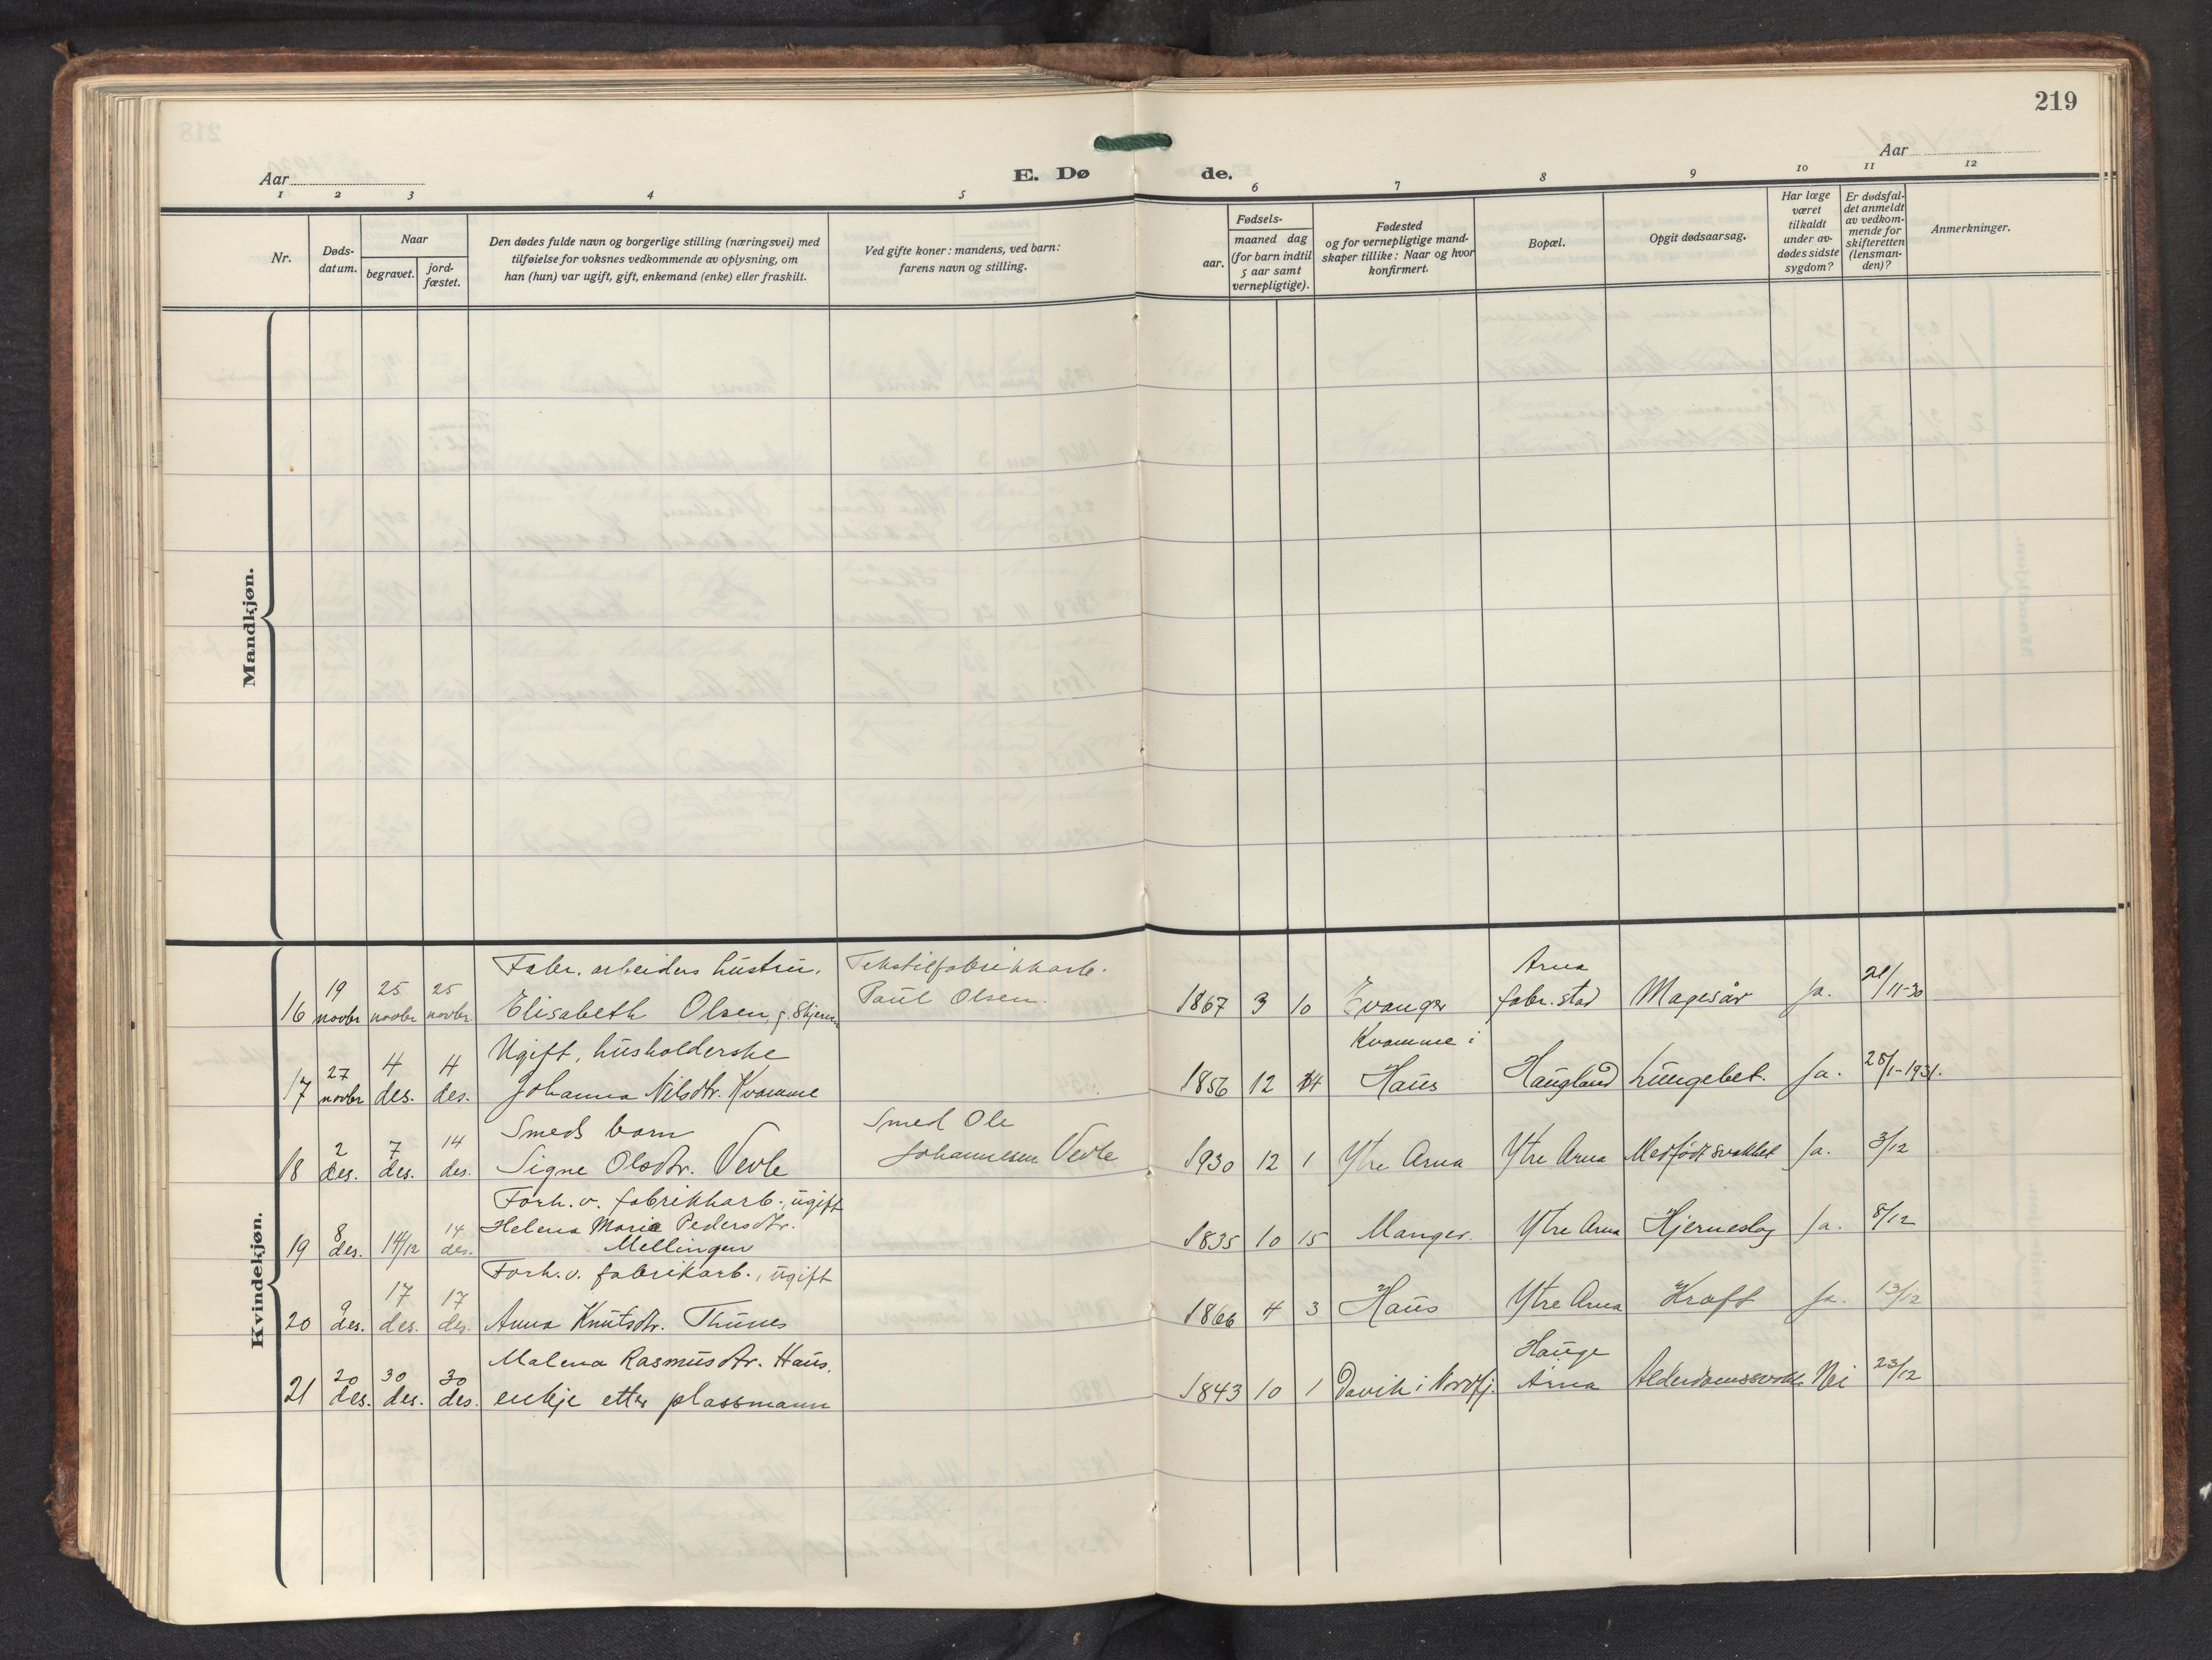 219
Aar
Aar
E. Dø de.
1 2 3 4 5 6 7 8 9 10 11 12
Nr.
Døds-
datum.
Naar
begravet.
jord-
fæstet.
Den dødes fulde navn og borgerlige stilling (næringsvei) med
tilføielse for voksnes vedkommende av oplysning, om
han (hun) var ugift, gift, enkemand (enke) eller fraskilt.
Ved gifte koner: mandens, ved barn:
farens navn og stilling.
Fødsels-
aar.
maaned dag
(for barn indtil
5 aar samt
vernepligtige).
Fødested
og for vernepligtige mand-
skaper tillike: Naar og hvor
konfirmert.
Bopæl.
Opgit dødsaarsag.
Har læge
været
tilkaldt
under av-
dødes sidste
sygdom?
Er dødsfal-
det anmeldt
av vedkom-
mende for
skifteretten
(lensman-
den)?
Anmerkninger.
Mandkjøn.
Kvindekjøn.
Fabr. arbeiders hustru. Tekstilfabrikkarb. Arna
16 19 novbr 25 novbr 25 novbr. Elisabeth Olsen, f. Paul Olsen. 1867 3 10 Evanger fabr. stad Magesår Ja. 21/11-30
Ugift, husholderske Kvamme i
17 27 novbr 4 des. 4 des. Johanna Nilsdtr. Kvamme 1856 12 14 Haus Haugland Lungebet. Ja. 28/1-1931.
Smeds barn Smed Ole
18 2 des. 7 des. 14 des. Signe Olsdtr. Vevle Johannesen Vevle 1930 12 1 Ytre Arna Ytre Arna Medfødt svakhet Ja. 3/12
Forh. v. fabrikkarb., ugift
19 8 des. 14/12 14 des. Helena Maria Pedersdtr. 1835 10 15 Manger. Ytre Arna Hjerneslag Ja. 8/12
Mellingen
Forh. v. fabrikarb., ugift
20 9 des. 17 des. 17 des. Anna Knutsdtr. Thunes 1866 4 3 Haus Ytre Arna Kræft Ja. 13/12
Malena Rasmusdtr. Haus. Hauge
21 20 des. 30 des. 30 des. enkje etter plassmann 1843 10 1 Davik i Nordfj. Arna Alderdomssvakh. Nei 23/12